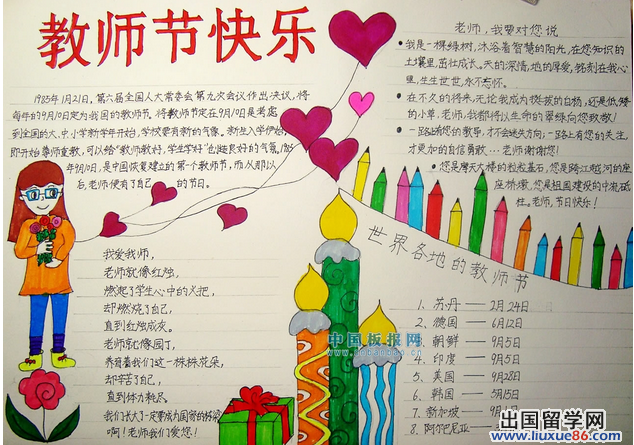 教师节快乐
1985年1月21日，第六届全国人大常委会第九次会议作出决议，将
每年的9月10日定为我国的教师节。将教师节定在9月10日是考虑
到全国的大、中、小学新学年开始，学校要有新的气象。新生入学伊始，
即开始尊师重教，可以给“教师教好，学生学好”创造良好的气氛。
年9月10日，是中国恢复建立的第一个教师节，而从那以
后，老师便有了自己的节日。
老师，我要对您说
我是一棵绿树，沐浴着智慧的阳光，在您知识的
土壤里，茁壮成长。天的深情，地的厚爱，铭刻在我心
里，生生世世，永不忘怀。
在不久的将来，无论我成为挺拔的白杨，还是低矮
的小草，老师，我都将以生命的翠绿向您致敬！
一路上有您的教导，才不会迷失方向；一路上有您的关注，
才更加的自信勇敢……老师谢谢您！
您是摩天大楼的粒粒基石，您是跨江越河的座
座桥墩，您是祖国建设的中流砥
柱。老师，节日快乐！
我爱我师，
老师就像红烛，
燃起了学生心中的火把，
却燃烧了自己，
直到红烛成灰。
老师就像园丁，
养育着我们这一株株花朵，
却辛苦了自己，
直到体力耗尽。
我们长大了一定要成为国家的栋梁
啊！老师我们爱您！
世界各地的教师节
1、苏丹——2月24日
2、德国——6月12日
3、朝鲜——9月5日
4、印度——9月5日
5、美国——9月28日
6、韩国——5月5日
7、新加坡——9月1日
8、阿尔巴尼亚
中国板报网
出国留学网
www.liuxue86.com